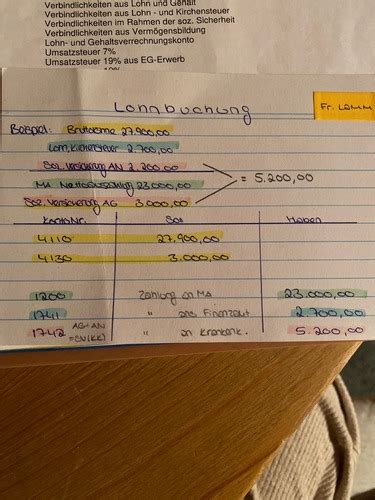 Verbindlichkeiten aus Lohn und Gehalt
Verbindlichkeiten aus Lohn - und Kirchensteuer
Verbindlichkeiten im Rahmen der soz. Sicherheit
Verbindlichkeiten aus Vermögensbildung
Lohn- und Gehaltsverrechnungskonto
Umsatzsteuer 7%
Umsatzsteuer 19% aus EG-Erwerb
Lohnbuchung
Fr. Lamm
Beispiel: Bruttolöhne 27.900,00
Lohn, Kirchensteuer 2.700,00
Soz. Versicherung AN 2.200,00
= 5.200,00
MA Nettoauszahlung 23.000,00
Soz. Versicherung AG 3.000,00
KontoNr. Soll Haben
4110 27.900,00
4130 3.000,00
1200 Zahlung an MA 23.000,00
1741 " ans Finanzamt 2.700,00
1742 AG+AN =SV(KK) " an Krankenk. 5.200,00